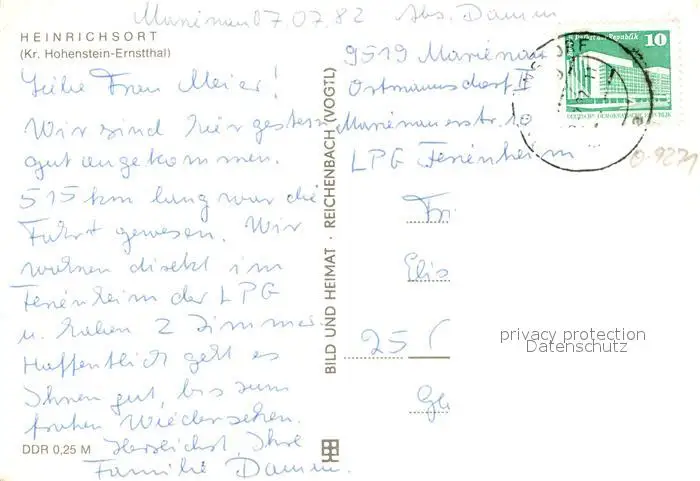 Marienau 07.07.82 Abs. Damm
HEINRICHSORT
(Kr. Hohenstein-Ernstthal)
Liebe Frau Meier!
Wir sind hier gestern
gut angekommen.
515 km lang war die
Fahrt gewesen. Wir
wohnen direkt im
Ferienheim der LPG
u. haben 2 Zimmer.
Hoffentlich geht es
Ihnen gut, bis zum
frohen Wiedersehen.
Herzlichst Ihre
Familie Damm.
DDR 0,25 M
BILD UND HEIMAT · REICHENBACH (VOGTL)
9519 Marienau
Ortmannsdorf II
Marienauerstr. 10
LPG Ferienheim
Elis
25
10
DEUTSCHE DEMOKRATISCHE REPUBLIK
O-9271
privacy protection
Datenschutz